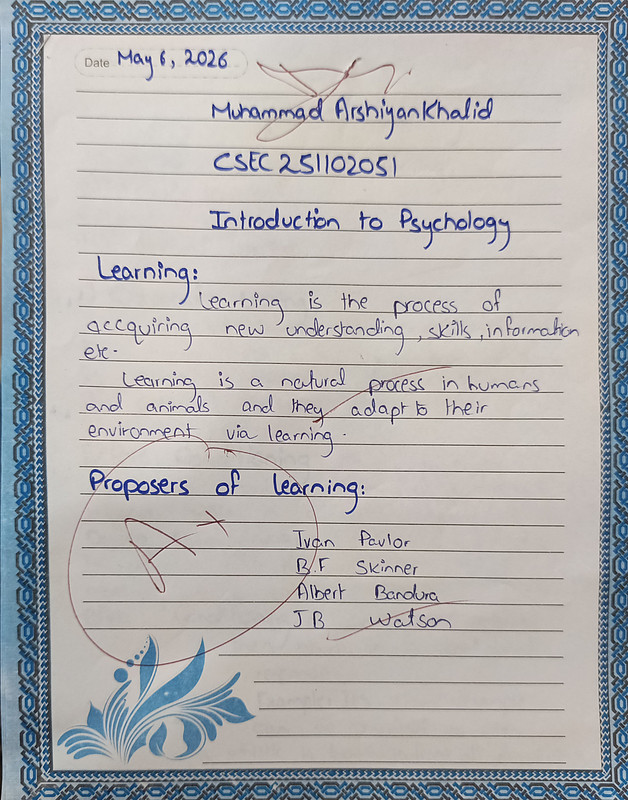 Date May 6, 2026
Muhammad Arshiyan Khalid
CSEC 251102051
Introduction to Psychology
Learning:
Learning is the process of
accquiring new understanding, skills, information
etc.
Learning is a natural process in humans
and animals and they adapt to their
environment via learning.
Proposers of learning:
A+
Ivan Pavlor
B.F Skinner
Albert Bandura
JB Watson